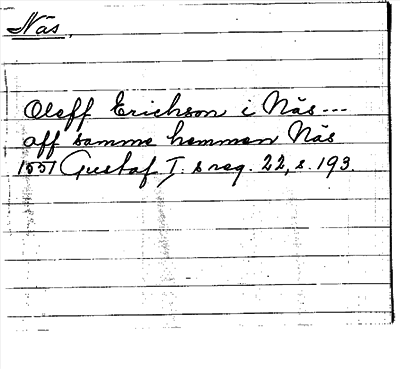 Näs.
Oleff Erichson i Näs---
aff samme hemman Näs
1551 Gustaf I. s reg. 22, s. 193.